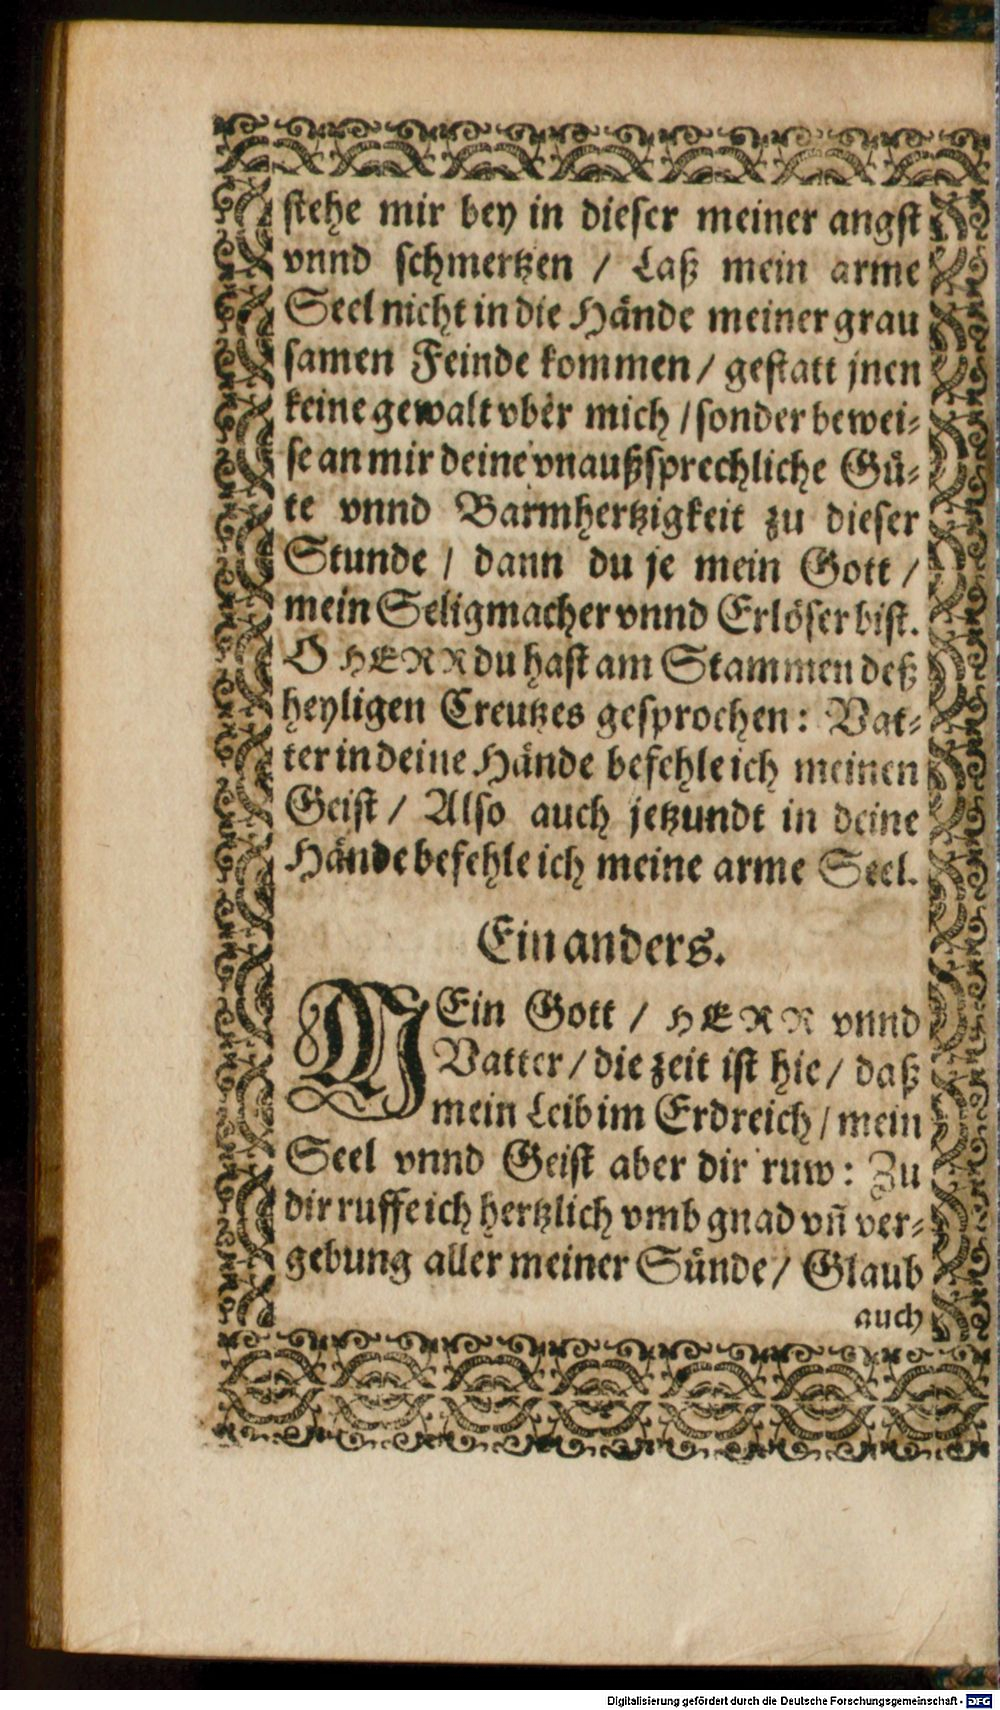 stehe mir bey in dieser meiner angst
vnnd schmertzen / Laß mein arme
Seel nicht in die Hände meiner grau
samen Feinde kommen / gestatt jnen
keine gewalt vber mich / sonder bewei⸗
se an mir deine vnaußsprechliche Gü⸗
te vnnd Barmhertzigkeit zu dieser
Stunde / dann du je mein Gott /
mein Seligmacher vnnd Erlöser bist.
O HERR du hast am Stammen deß
heyligen Creutzes gesprochen: Vat⸗
ter in deine Hände befehle ich meinen
Geist / Also auch jetzundt in deine
Hände befehle ich meine arme Seel.
Ein anders.
MEin Gott / HERR vnnd
Vatter / die zeit ist hie / daß
mein Leib im Erdreich / mein
Seel vnnd Geist aber dir ruw: Zu
dir ruffe ich hertzlich vmb gnad vñ ver⸗
gebung aller meiner Sünde / Glaub
auch
Digitalisierung gefördert durch die Deutsche Forschungsgemeinschaft - DFG